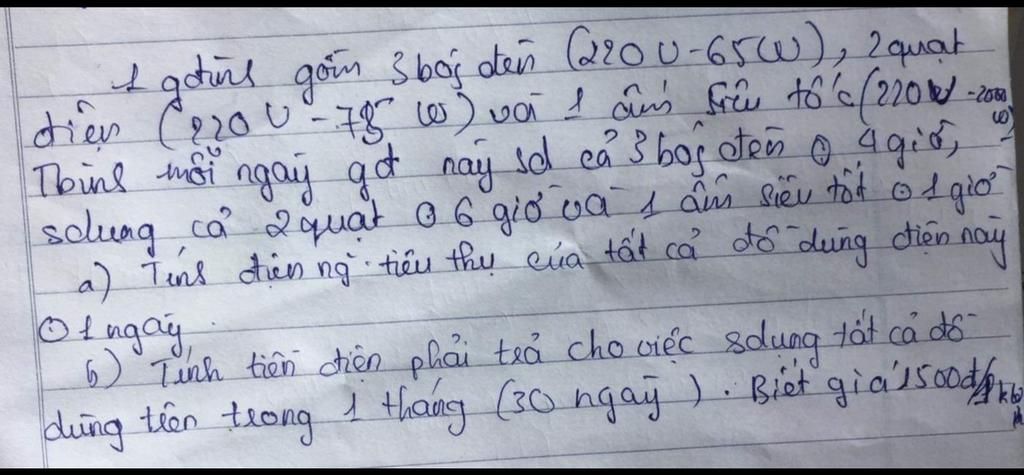 1 gđình gồm 3 bóng đèn (220V-65W), 2 quạt
điện (220V-75W) và 1 ấm siêu tốc (220V-2000W)
Tbình mỗi ngày gđ này sd cả 3 bóng đèn 4 giờ,
sdụng cả 2 quạt 6 giờ và 1 ấm siêu tốt 1 giờ
a) Tính điện ng. tiêu thụ của tất cả đồ dùng điện này
1 ngày.
b) Tính tiền điện phải trả cho việc sdụng tất cả đồ
dùng trên trong 1 tháng (30 ngày). Biết giá 1500đ/1kWh